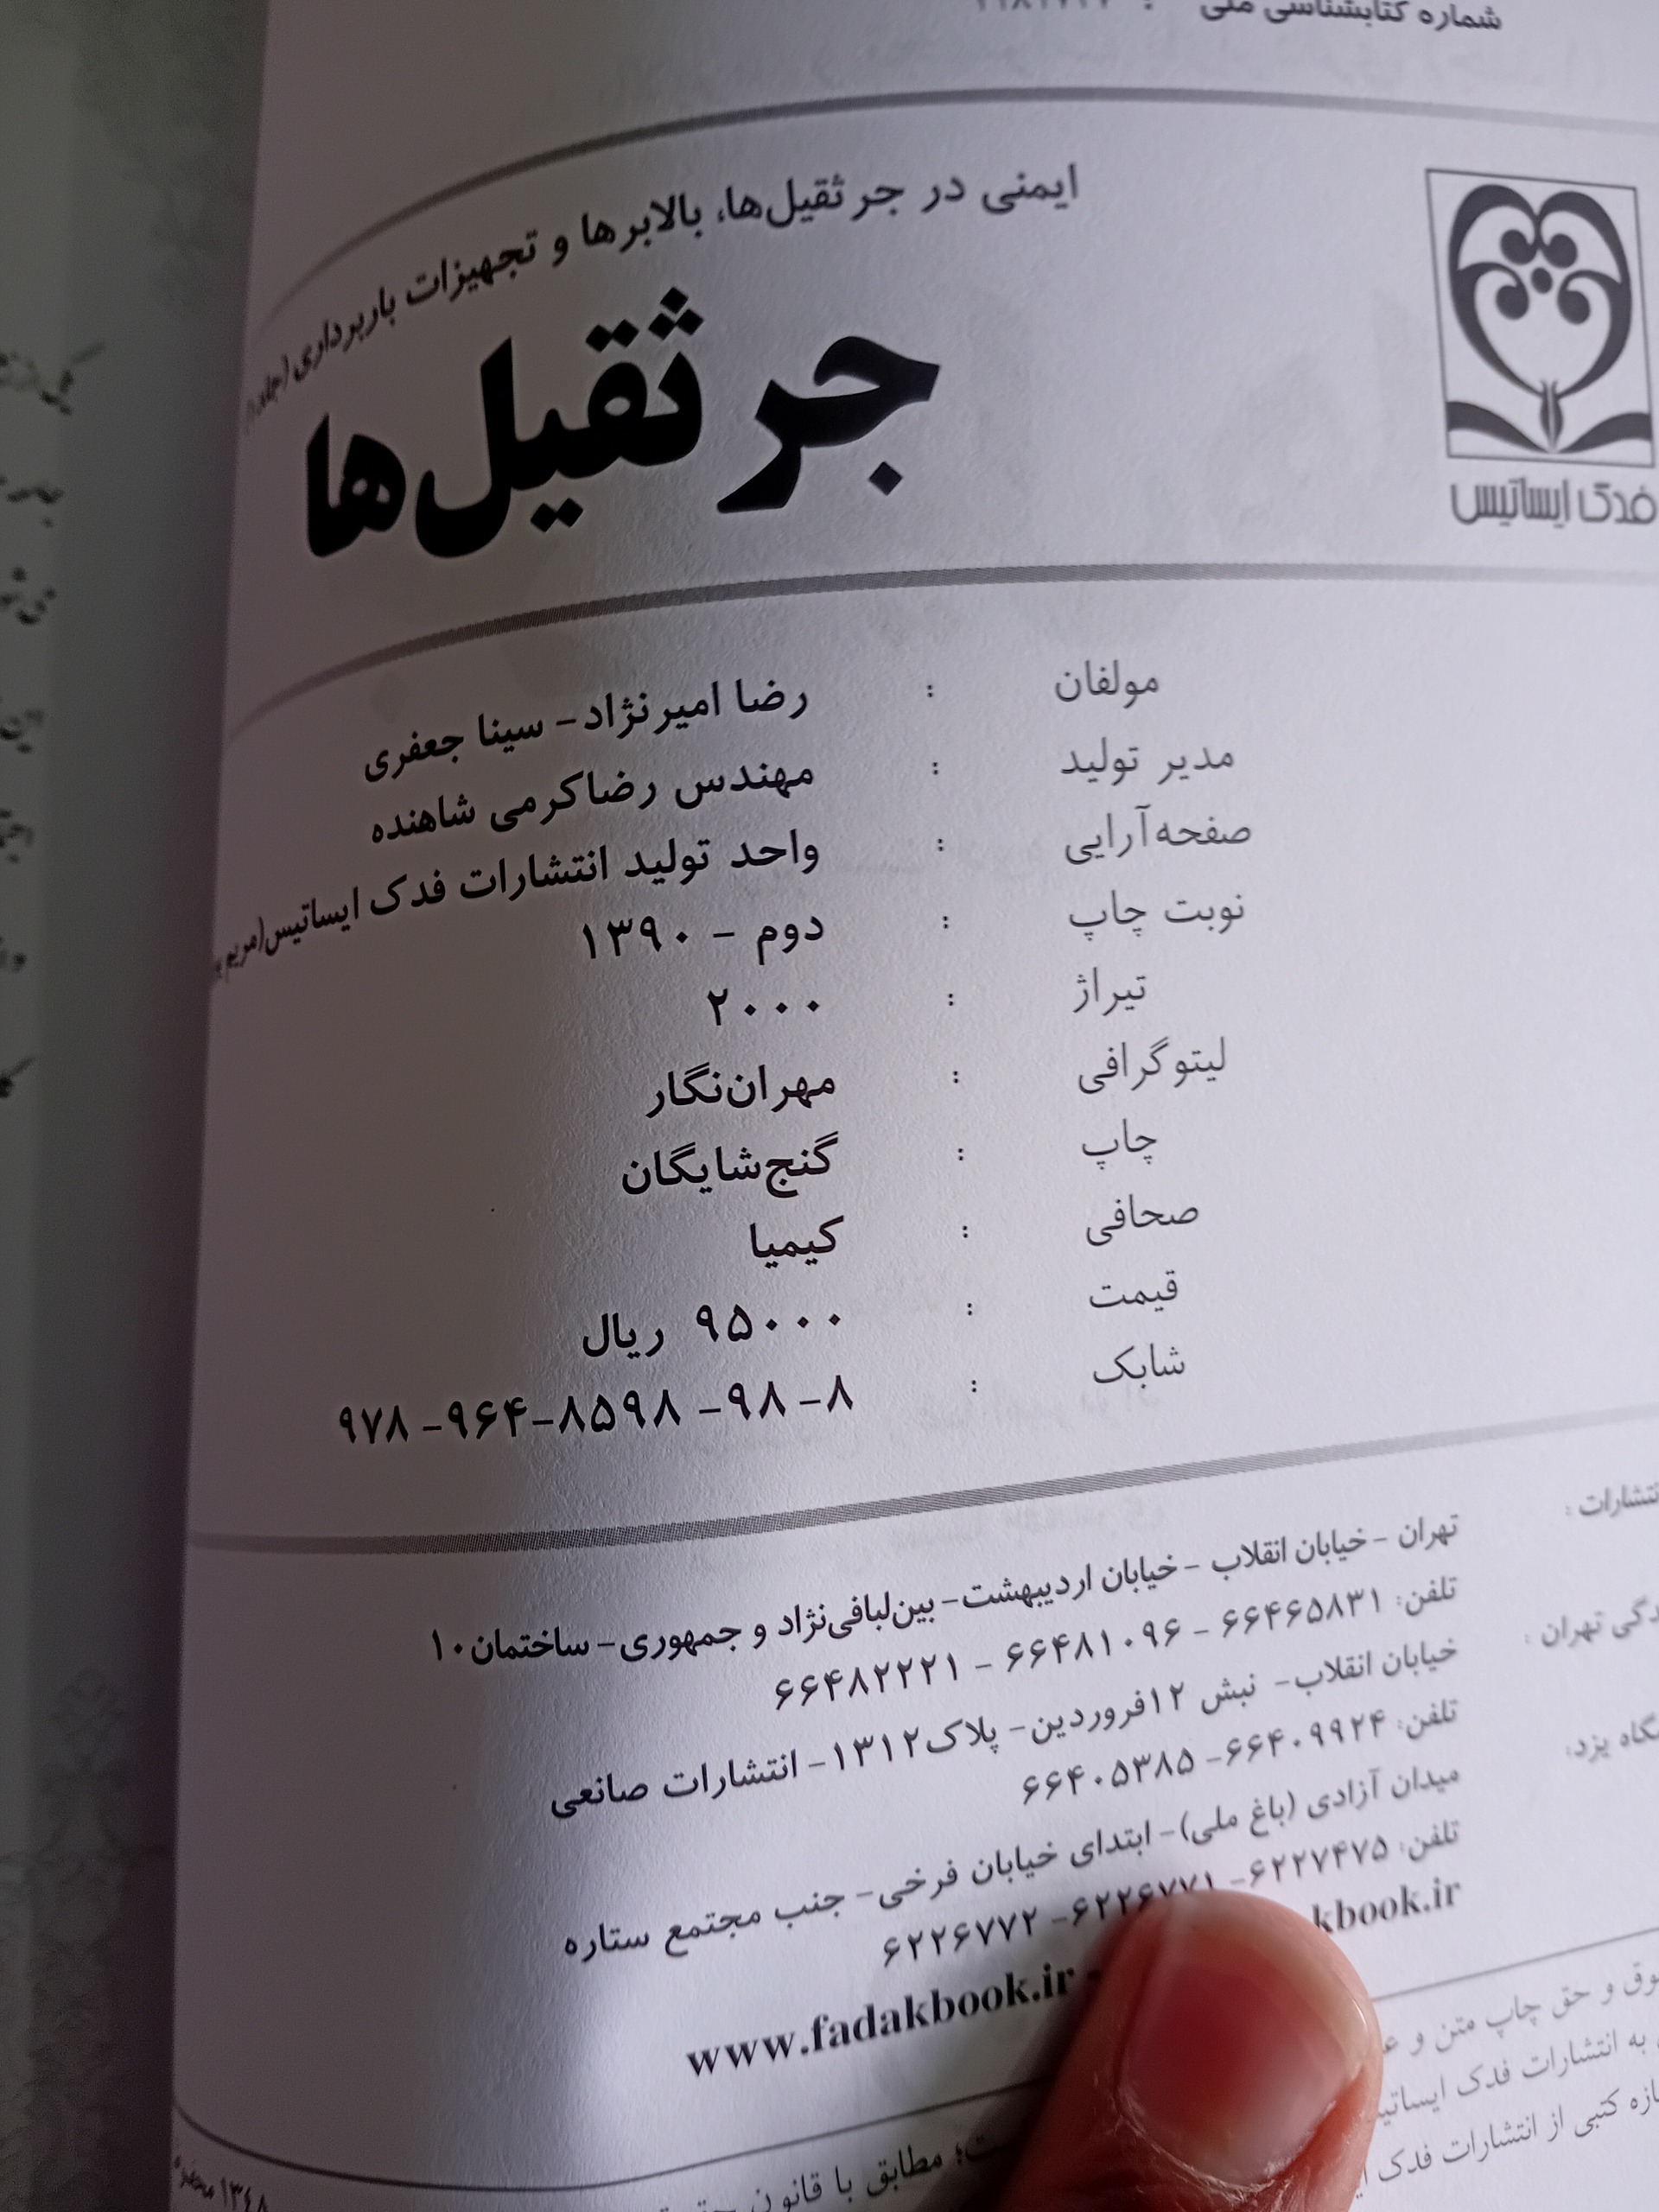 شماره کتابشناسی ملی :
ایمنی در جرثقیل‌ها، بالابرها و تجهیزات باربرداری (جلد۱)
جرثقیل‌ها
فدک ایساتیس
مولفان : رضا امیرنژاد- سینا جعفری
مدیر تولید : مهندس رضاکرمی شاهنده
صفحه‌آرایی : واحد تولید انتشارات فدک ایساتیس(مریم
نوبت چاپ : دوم - ۱۳۹۰
تیراژ : ۲۰۰۰
لیتوگرافی : مهران‌نگار
چاپ : گنج‌شایگان
صحافی : کیمیا
قیمت : ۹۵۰۰۰ ریال
شابک : ۹۷۸-۹۶۴-۸۵۹۸-۹۸-۸
نتشارات : تهران -خیابان انقلاب -خیابان اردیبهشت- بین‌لبافی‌نژاد و جمهوری- ساختمان۱۰
تلفن: ۶۶۴۶۵۸۳۱ - ۶۶۴۸۱۰۹۶ - ۶۶۴۸۲۲۲۱
دگی تهران : خیابان انقلاب- نبش ۱۲فروردین- پلاک۱۳۱۲- انتشارات صانعی
تلفن: ۶۶۴۰۹۹۲۴- ۶۶۴۰۵۳۸۵
گاه یزد: میدان آزادی (باغ ملی)- ابتدای خیابان فرخی- جنب مجتمع ستاره
تلفن: ۶۲۲۷۴۷۵- ۶۲۲۶۷۷۱- ۶۲۲۶۷۷۲
www.fadakbook.ir - kbook.ir
وق و حق چاپ متن و
به انتشارات فدک ایساتیس ت؛ مطابق با قانون
ازه کتبی از انتشارات فدک
۱۳۴۸